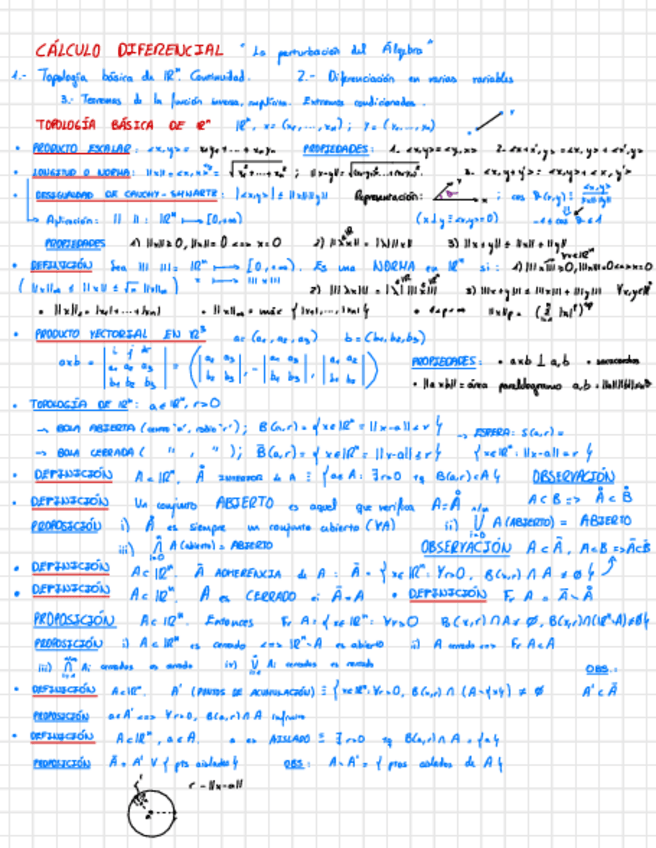 CÁLCULO DIFERENCIAL "La perturbación del Álgebra"
1.- Topología básica de IRⁿ. Continuidad. 2.- Diferenciación en varias variables
3.- Teoremas de la función inversa, implícita. Extremos condicionados.
TOPOLOGÍA BÁSICA DE IRⁿ IRⁿ, x = (x₁, ..., xₙ); y = (y₁, ..., yₙ)
• PRODUCTO ESCALAR: <x,y> = x₁y₁ + ... + xₙyₙ PROPIEDADES: 1. <x,y> = <y,x> 2. <x+x',y> = <x,y> + <x',y>
• LONGITUD O NORMA: ||x|| = <x,x>^½ = √x₁² + ... + xₙ² ; 3. <x,y+y'> = <x,y> + <x,y'>
• DESIGUALDAD DE CAUCHY-SHWARTZ: |<x,y>| ≤ ||x|| ||y|| Representación: ; cos
Aplicación: || ||: IRⁿ ⟼ [0,+∞) (x⊥y ≡ <x,y> = 0)
PROPIEDADES 1) ||x|| ≥ 0, ||x|| = 0 <=> x = 0 2) ||λx|| = |λ| ||x|| 3) ||x+y|| ≤ ||x|| + ||y||
• DEFINICIÓN Sea ||| |||: IRⁿ ⟼ [0,+∞). Es una NORMA en IRⁿ si: 1) |||x||| ≥ 0, |||x||| = 0 <=> x = 0
2) |||λx||| = |λ| |||x||| 3) |||x+y||| ≤ |||x||| + |||y||| ∀x,y∈IRⁿ
• ||x||₁ = |x₁| + ... + |xₙ| • ||x||∞ = máx {|x₁|, ..., |xₙ|}
• PRODUCTO VECTORIAL EN IR³ a = (a₁, a₂, a₃) b = (b₁, b₂, b₃)
a×b = | i j k
a₁ a₂ a₃
b₁ b₂ b₃ | = (| a₂ a₃
b₂ b₃ |, -| a₁ a₃
b₁ b₃ |, | a₁ a₂
b₁ b₂ |)
PROPIEDADES: • a×b ⊥ a,b
• ||a×b|| = área paralelogramo a,b
• TOPOLOGÍA DE IRⁿ: a∈IRⁿ, r>0
→ BOLA ABIERTA (centro "a", radio "r"); B(a,r) = {x∈IRⁿ: ||x-a|| < r} → ESFERA: S(a,r) =
→ BOLA CERRADA ( " , " ); B̄(a,r) = {x∈IRⁿ: ||x-a|| ≤ r} {x∈IRⁿ: ||x-a|| = r}
• DEFINICIÓN A⊂IRⁿ, Å INTERIOR de A ≡ {a∈A: ∃r>0 tq B(a,r)⊂A} OBSERVACIÓN
A⊂B => Å⊂B̊
• DEFINICIÓN Un conjunto ABIERTO es aquel que verifica A = Å
PROPOSICIÓN i) Å es siempre un conjunto abierto (∀A) ii) ∪ A (ABIERTO) = ABIERTO
iii) ∩ A (abierto) = ABIERTO OBSERVACIÓN A⊂Ā, A⊂B => Ā⊂B̄
• DEFINICIÓN A⊂IRⁿ. Ā ADHERENCIA de A: Ā = {x∈IRⁿ: ∀r>0, B(x,r) ∩ A ≠ ∅}
• DEFINICIÓN A⊂IRⁿ. A es CERRADO si Ā = A • DEFINICIÓN Fr A = Ā \ Å
PROPOSICIÓN A⊂IRⁿ. Entonces Fr A = {x∈IRⁿ: ∀r>0 B(x,r) ∩ A ≠ ∅, B(x,r) ∩ (IRⁿ\A) ≠ ∅}
PROPOSICIÓN i) A⊂IRⁿ es cerrado <=> IRⁿ\A es abierto ii) A cerrado <=> Fr A⊂A
iii) ∩ Aᵢ cerrados es cerrado iv) ∪ Aᵢ cerrados es cerrado OBS.:
• DEFINICIÓN A⊂IRⁿ. A' (PUNTOS DE ACUMULACIÓN) ≡ {x∈IRⁿ: ∀r>0, B(x,r) ∩ (A\{x}) ≠ ∅ A'⊂Ā
PROPOSICIÓN a∈A' <=> ∀r>0, B(a,r) ∩ A infinito
• DEFINICIÓN A⊂IRⁿ, a∈A. a es AISLADO ≡ ∃r>0 tq B(a,r) ∩ A = {a}
PROPOSICIÓN Ā = A' ∪ {pts aislados} OBS: A\A' = {ptos aislados de A}
r - ||x-a||